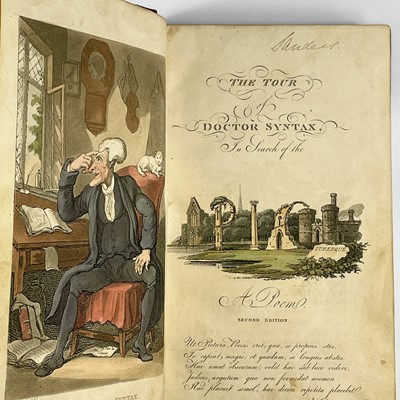 Sanders.
THE TOUR
of
DOCTOR SYNTAX,
In Search of the
PICT
URESQUE
A Poem
SECOND EDITION.
Ut Pictura, Poesis erit; quæ, si propius stes,
Te capiat magis; et quædam, si longius abstes.
Hæc amat obscurum; volet hæc sub luce videri,
Judicis argutum quæ non formidat acumen
Hæc placuit semel, hæc decies repetita placebit